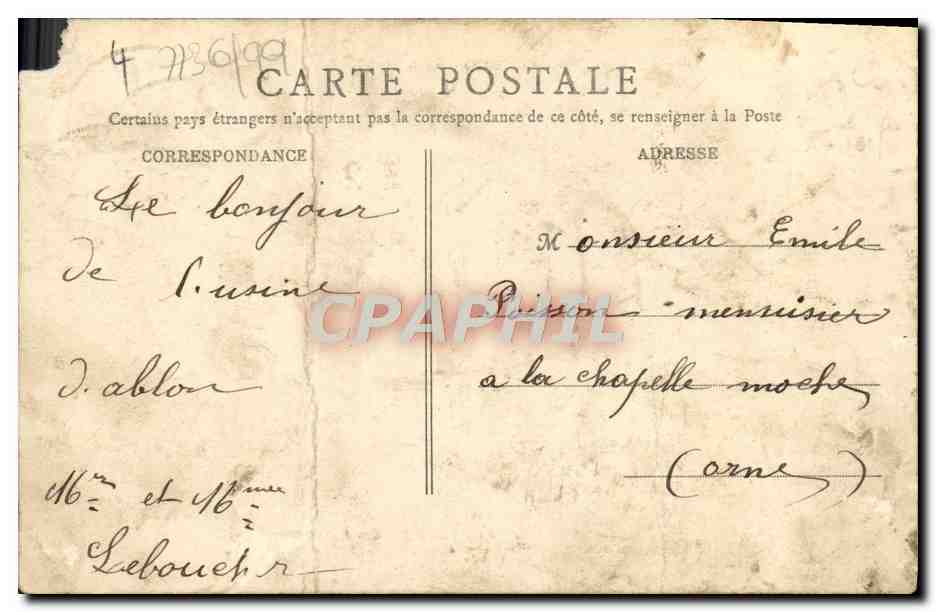 4 7736/99
CARTE POSTALE
Certains pays étrangers n'acceptant pas la correspondance de ce côté, se renseigner à la Poste
CORRESPONDANCE
Le bonjour
de l'usine
d'ablon
Mr et Mmee
Lebouchr
ADRESSE
Monsieur Emile
Poisson menuisier
a la chapelle moche
(orne)
CPAPHIL